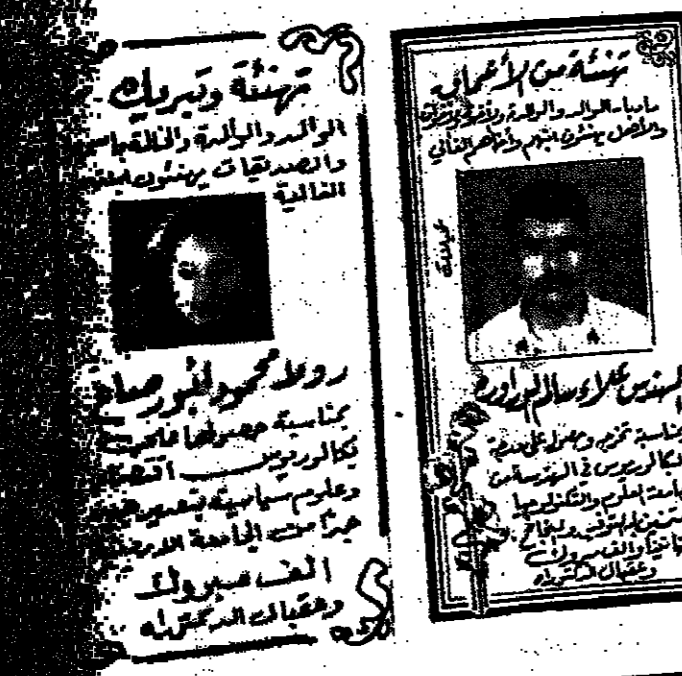 تهنئة من الأعماق
مادبا - الوالد والوالدة
والأهل يهنئون ابنهم وأخاهم الغالي
المهندس علاء سالم
بمناسبة تخرجه وحصوله على درجة
البكالوريوس في الهندسة من
جامعة العلوم والتكنولوجيا
متمنين له التوفيق والنجاح
والف مبروك
وعقبال الدكتوراه
تهنئة وتبريك
الوالد والوالدة والخالة
والصديقات يهنئون
الغالية
رولا محمود
بمناسبة حصولها على
بكالوريوس اقتصاد
وعلوم سياسية بتقدير جيد
جداً من الجامعة الاردنية
الف مبروك
وعقبال الدكتوراه